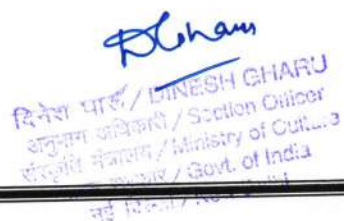 दिनेश घारू / DINESH GHARU
अनुभाग अधिकारी / Section Officer
संस्कृति मंत्रालय / Ministry of Culture
/ Govt. of India
नई दिल्ली /